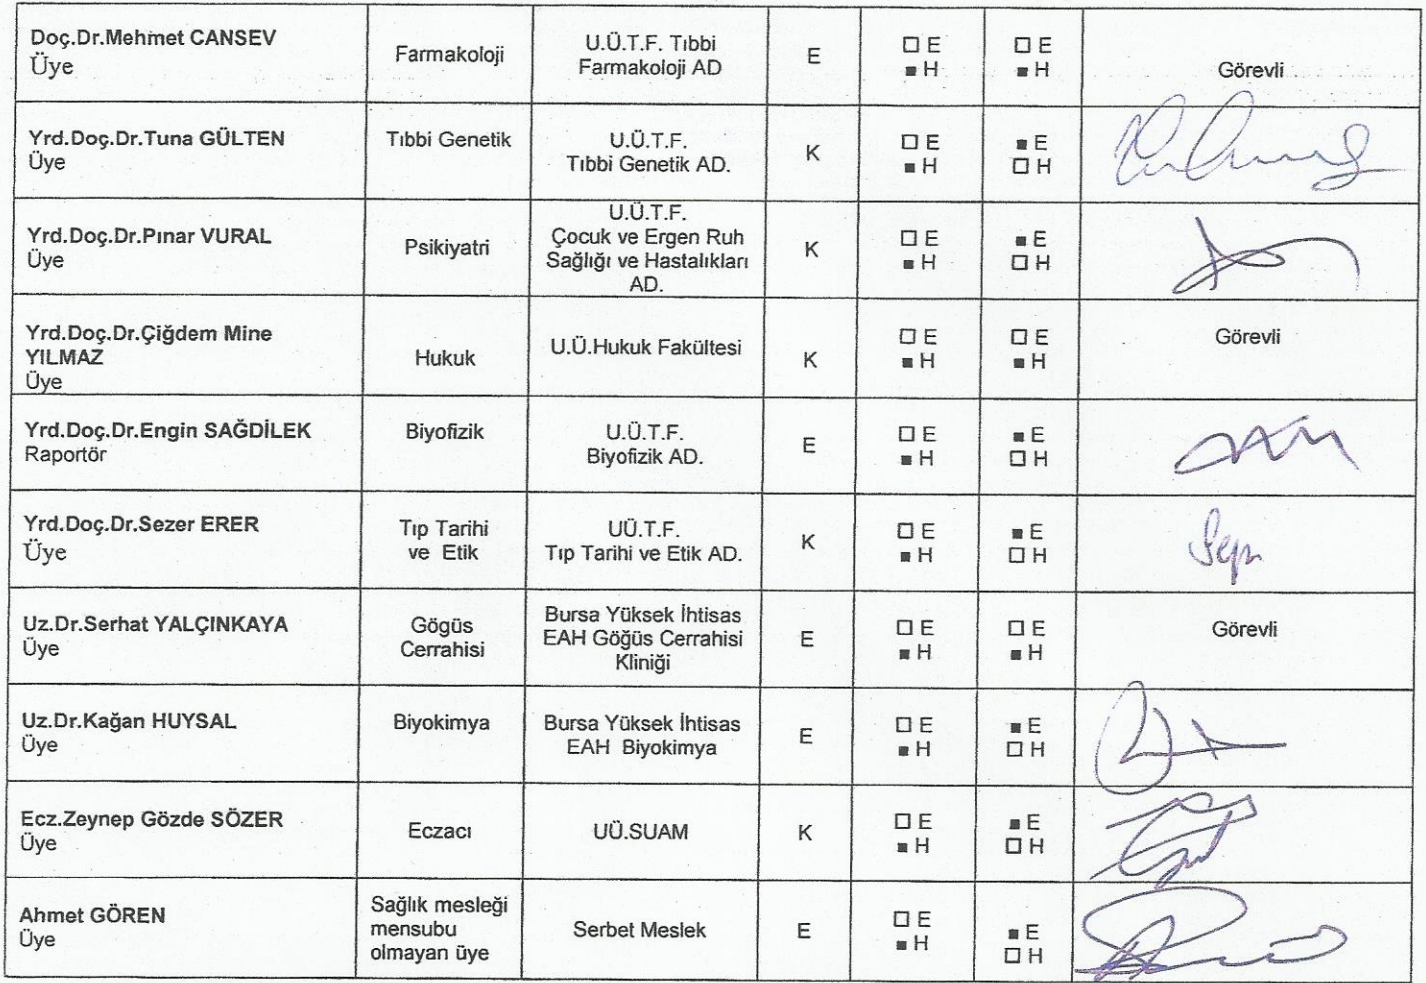 Doç.Dr.Mehmet CANSEV
Üye
Farmakoloji
U.Ü.T.F. Tıbbi
Farmakoloji AD
E
□ E
■ H
□ E
■ H
Görevli
Yrd.Doç.Dr.Tuna GÜLTEN
Üye
Tıbbi Genetik
U.Ü.T.F.
Tıbbi Genetik AD.
K
□ E
■ H
■ E
□ H
Yrd.Doç.Dr.Pınar VURAL
Üye
Psikiyatri
U.Ü.T.F.
Çocuk ve Ergen Ruh
Sağlığı ve Hastalıkları
AD.
K
□ E
■ H
■ E
□ H
Yrd.Doç.Dr.Çiğdem Mine
YILMAZ
Üye
Hukuk
U.Ü.Hukuk Fakültesi
K
□ E
■ H
□ E
■ H
Görevli
Yrd.Doç.Dr.Engin SAĞDİLEK
Raportör
Biyofizik
U.Ü.T.F.
Biyofizik AD.
E
□ E
■ H
■ E
□ H
Yrd.Doç.Dr.Sezer ERER
Üye
Tıp Tarihi
ve Etik
UÜ.T.F.
Tıp Tarihi ve Etik AD.
K
□ E
■ H
■ E
□ H
Uz.Dr.Serhat YALÇINKAYA
Üye
Gögüs
Cerrahisi
Bursa Yüksek İhtisas
EAH Göğüs Cerrahisi
Kliniği
E
□ E
■ H
□ E
■ H
Görevli
Uz.Dr.Kağan HUYSAL
Üye
Biyokimya
Bursa Yüksek İhtisas
EAH Biyokimya
E
□ E
■ H
■ E
□ H
Ecz.Zeynep Gözde SÖZER
Üye
Eczacı
UÜ.SUAM
K
□ E
■ H
■ E
□ H
Ahmet GÖREN
Üye
Sağlık mesleği
mensubu
olmayan üye
Serbet Meslek
E
□ E
■ H
■ E
□ H